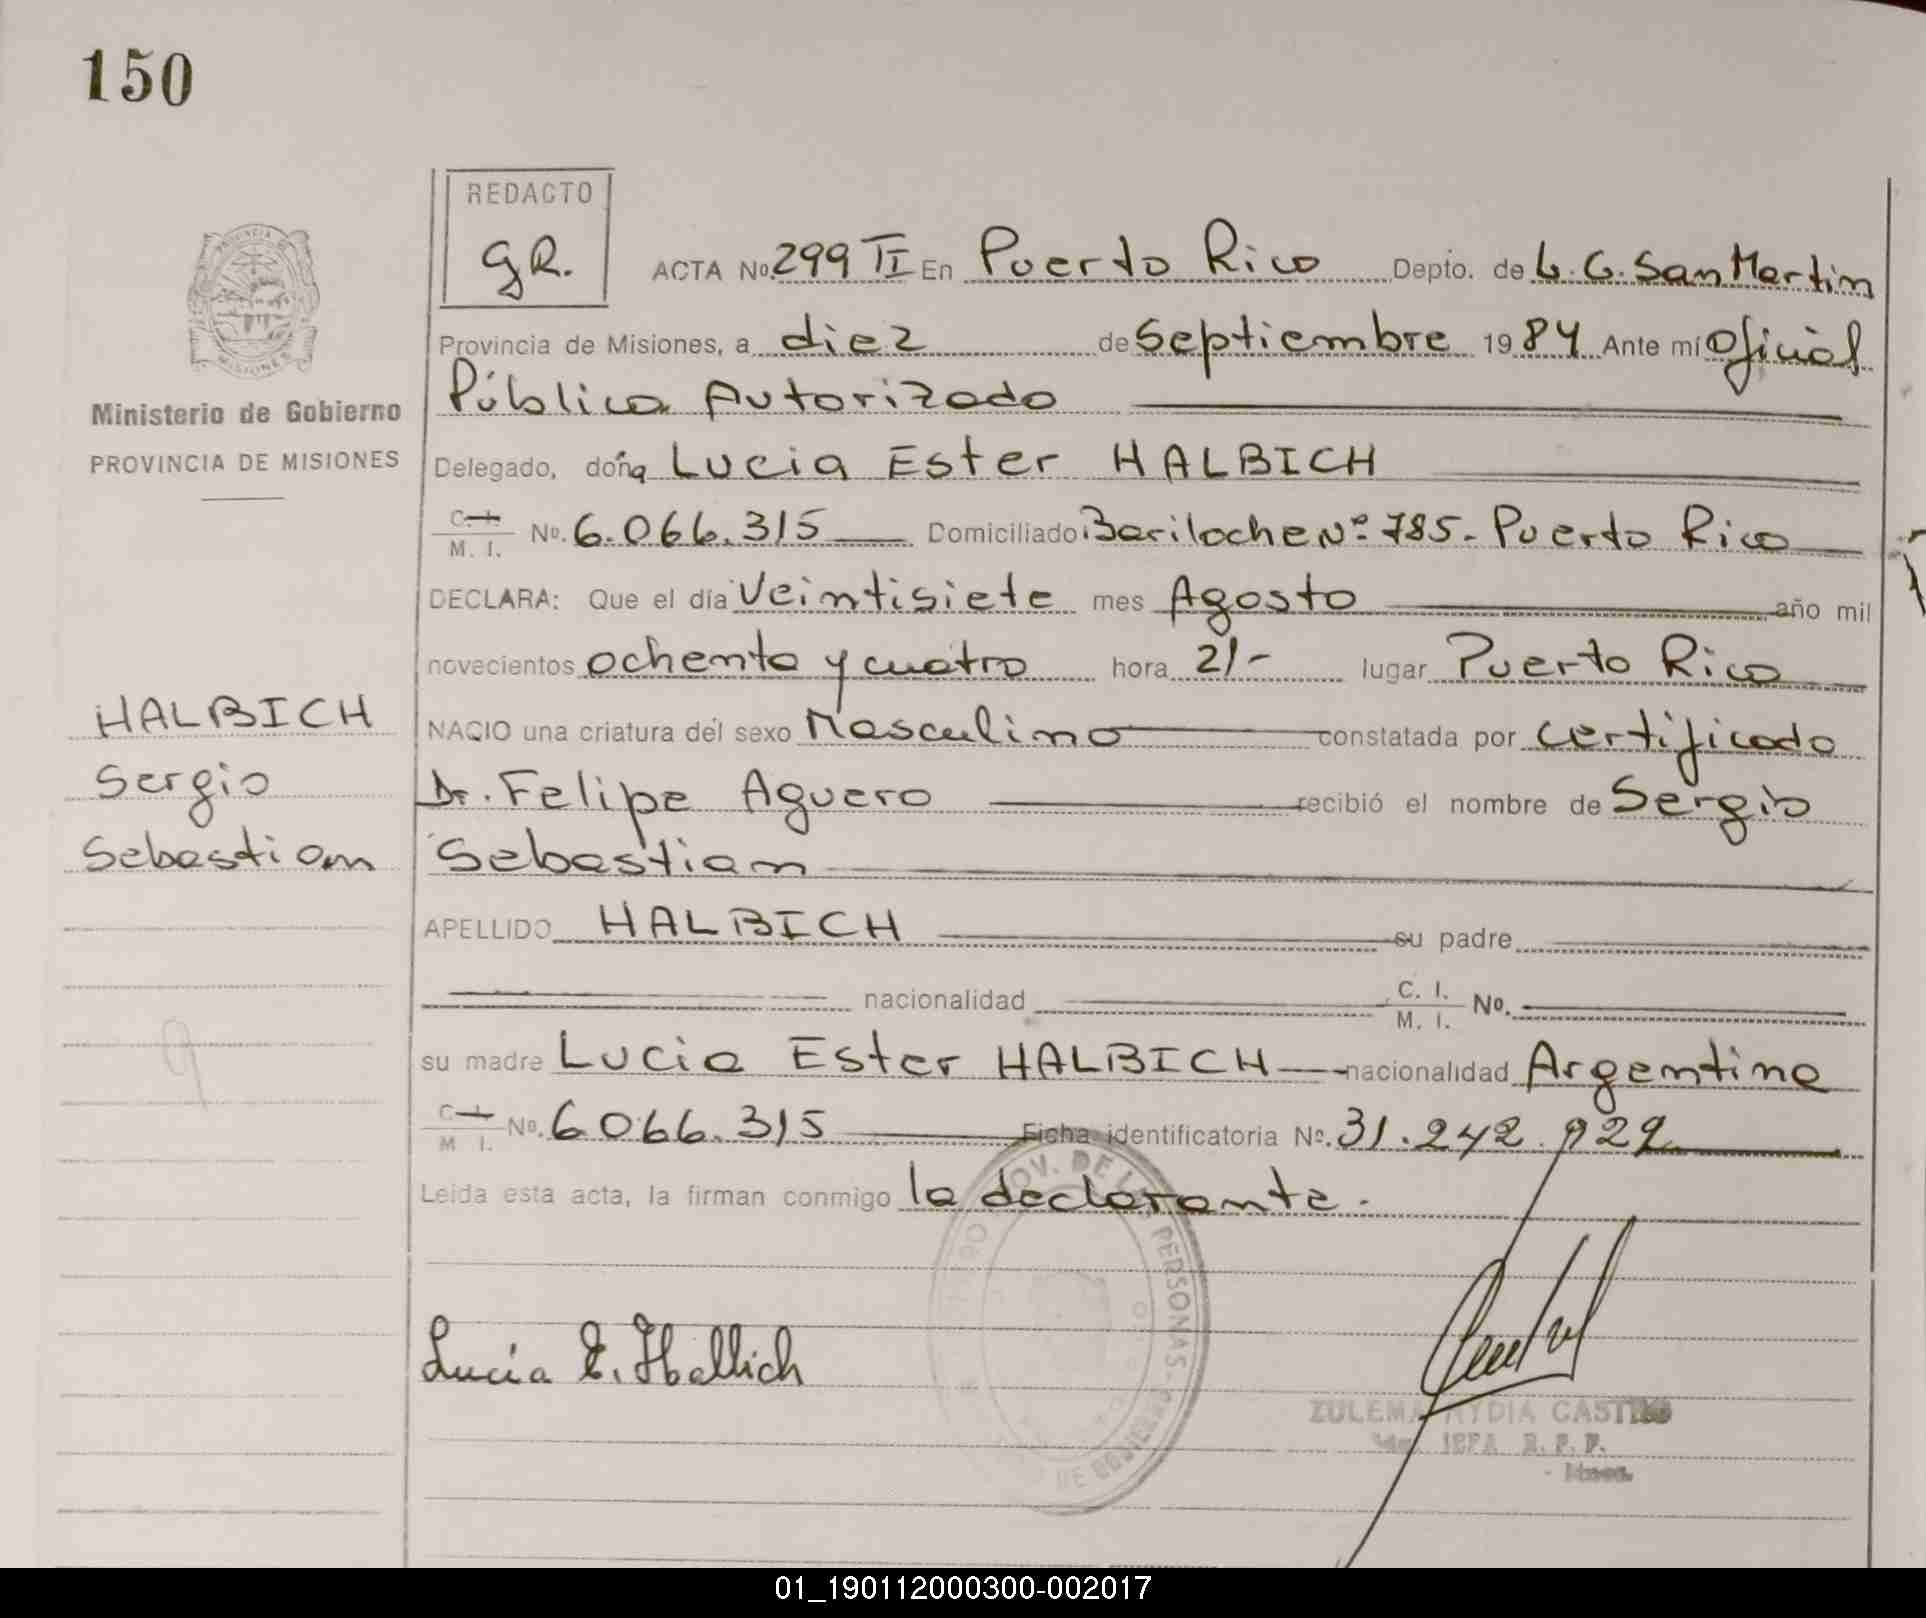 150
REDACTO
gR.
ACTA No. 299 II En Puerto Rico Depto. de L. G. San Martin
Provincia de Misiones, a diez de Septiembre 1984 Ante mí Oficial
Público Autorizado
Ministerio de Gobierno
PROVINCIA DE MISIONES
Delegado, doña Lucia Ester HALBICH
C. I. M. I. No. 6.066.315 Domiciliado Bariloche Nº 785. Puerto Rico
DECLARA: Que el día Veintisiete mes Agosto año mil
novecientos ochenta y cuatro hora 21- lugar Puerto Rico
HALBICH
Sergio
Sebastian
NACIO una criatura del sexo Masculino constatada por certificado
Dr. Felipe Aguero recibió el nombre de Sergio
Sebastian
APELLIDO HALBICH su padre
nacionalidad C. I. M. I. No.
su madre Lucia Ester HALBICH nacionalidad Argentina
C. I. M. I. No. 6.066.315 Ficha identificatoria Nº. 31.242.922
Leida esta acta, la firman conmigo la declarante.
PERSONAS
Lucía E. Halbich
ZULEMA
01_190112000300-002017